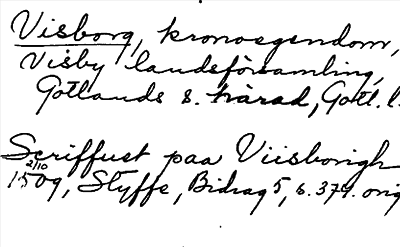 Visborg, kronoegendom,
Visby landsförsamling,
Gotlands s. härad, Gotl. l.
Scriffuet paa Viisborigh
2/10
1509, Styffe, Bidrag 5, s. 371. orig